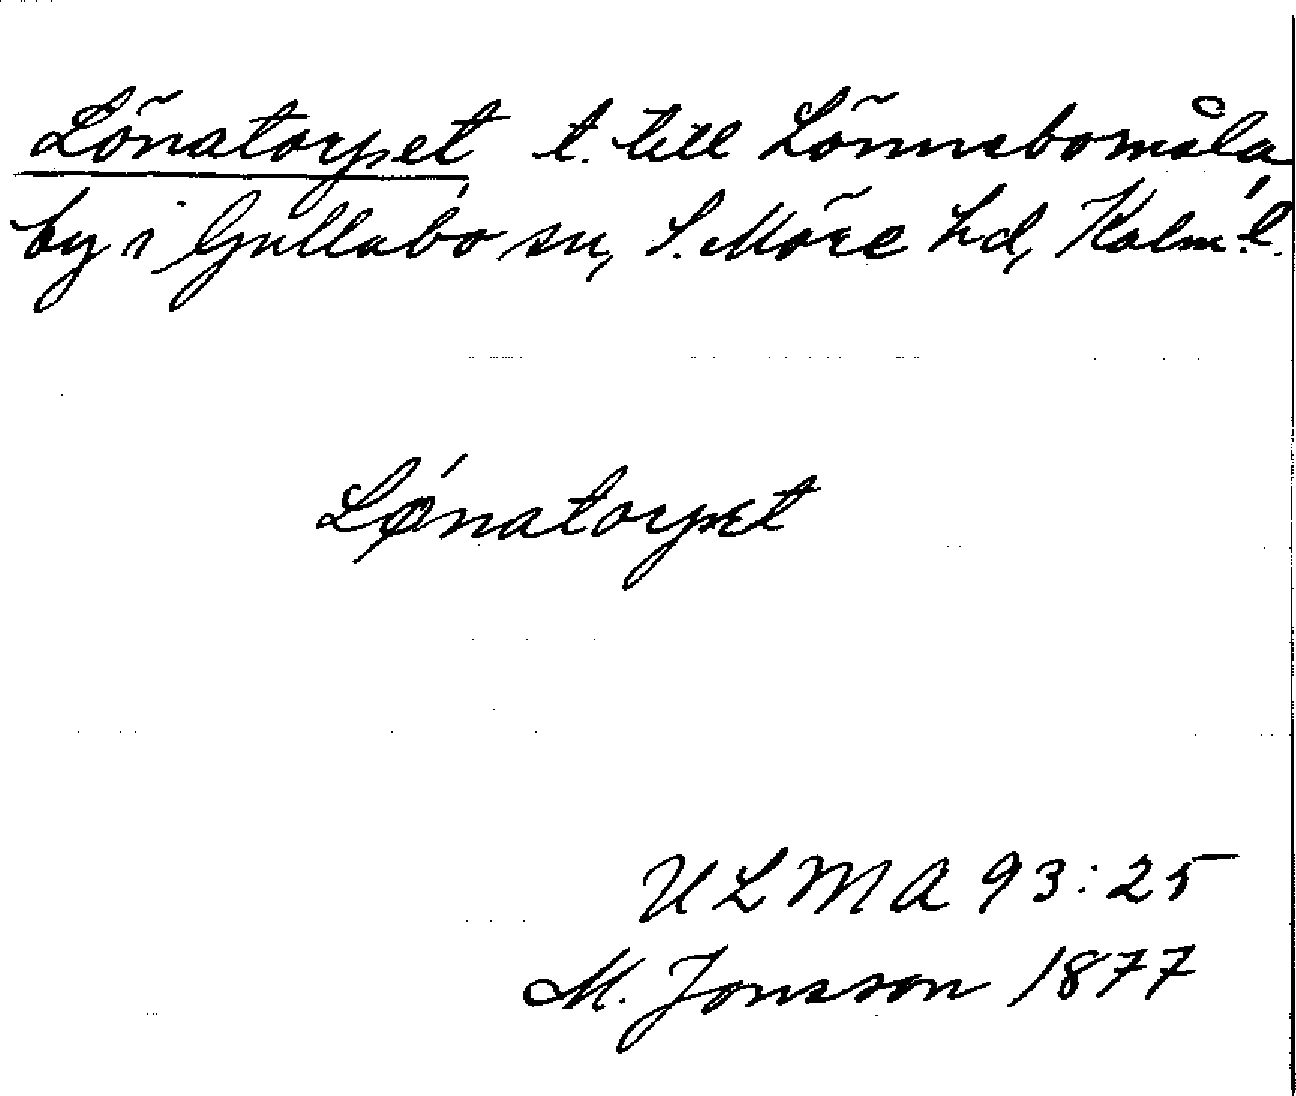 Lönatorpet t. till Lönnebomåla
by i Gullabo sn, S. Möre hd, Kalm. l.
Lǿnatorpet
ULMA 93:25
M. Jonsson 1877